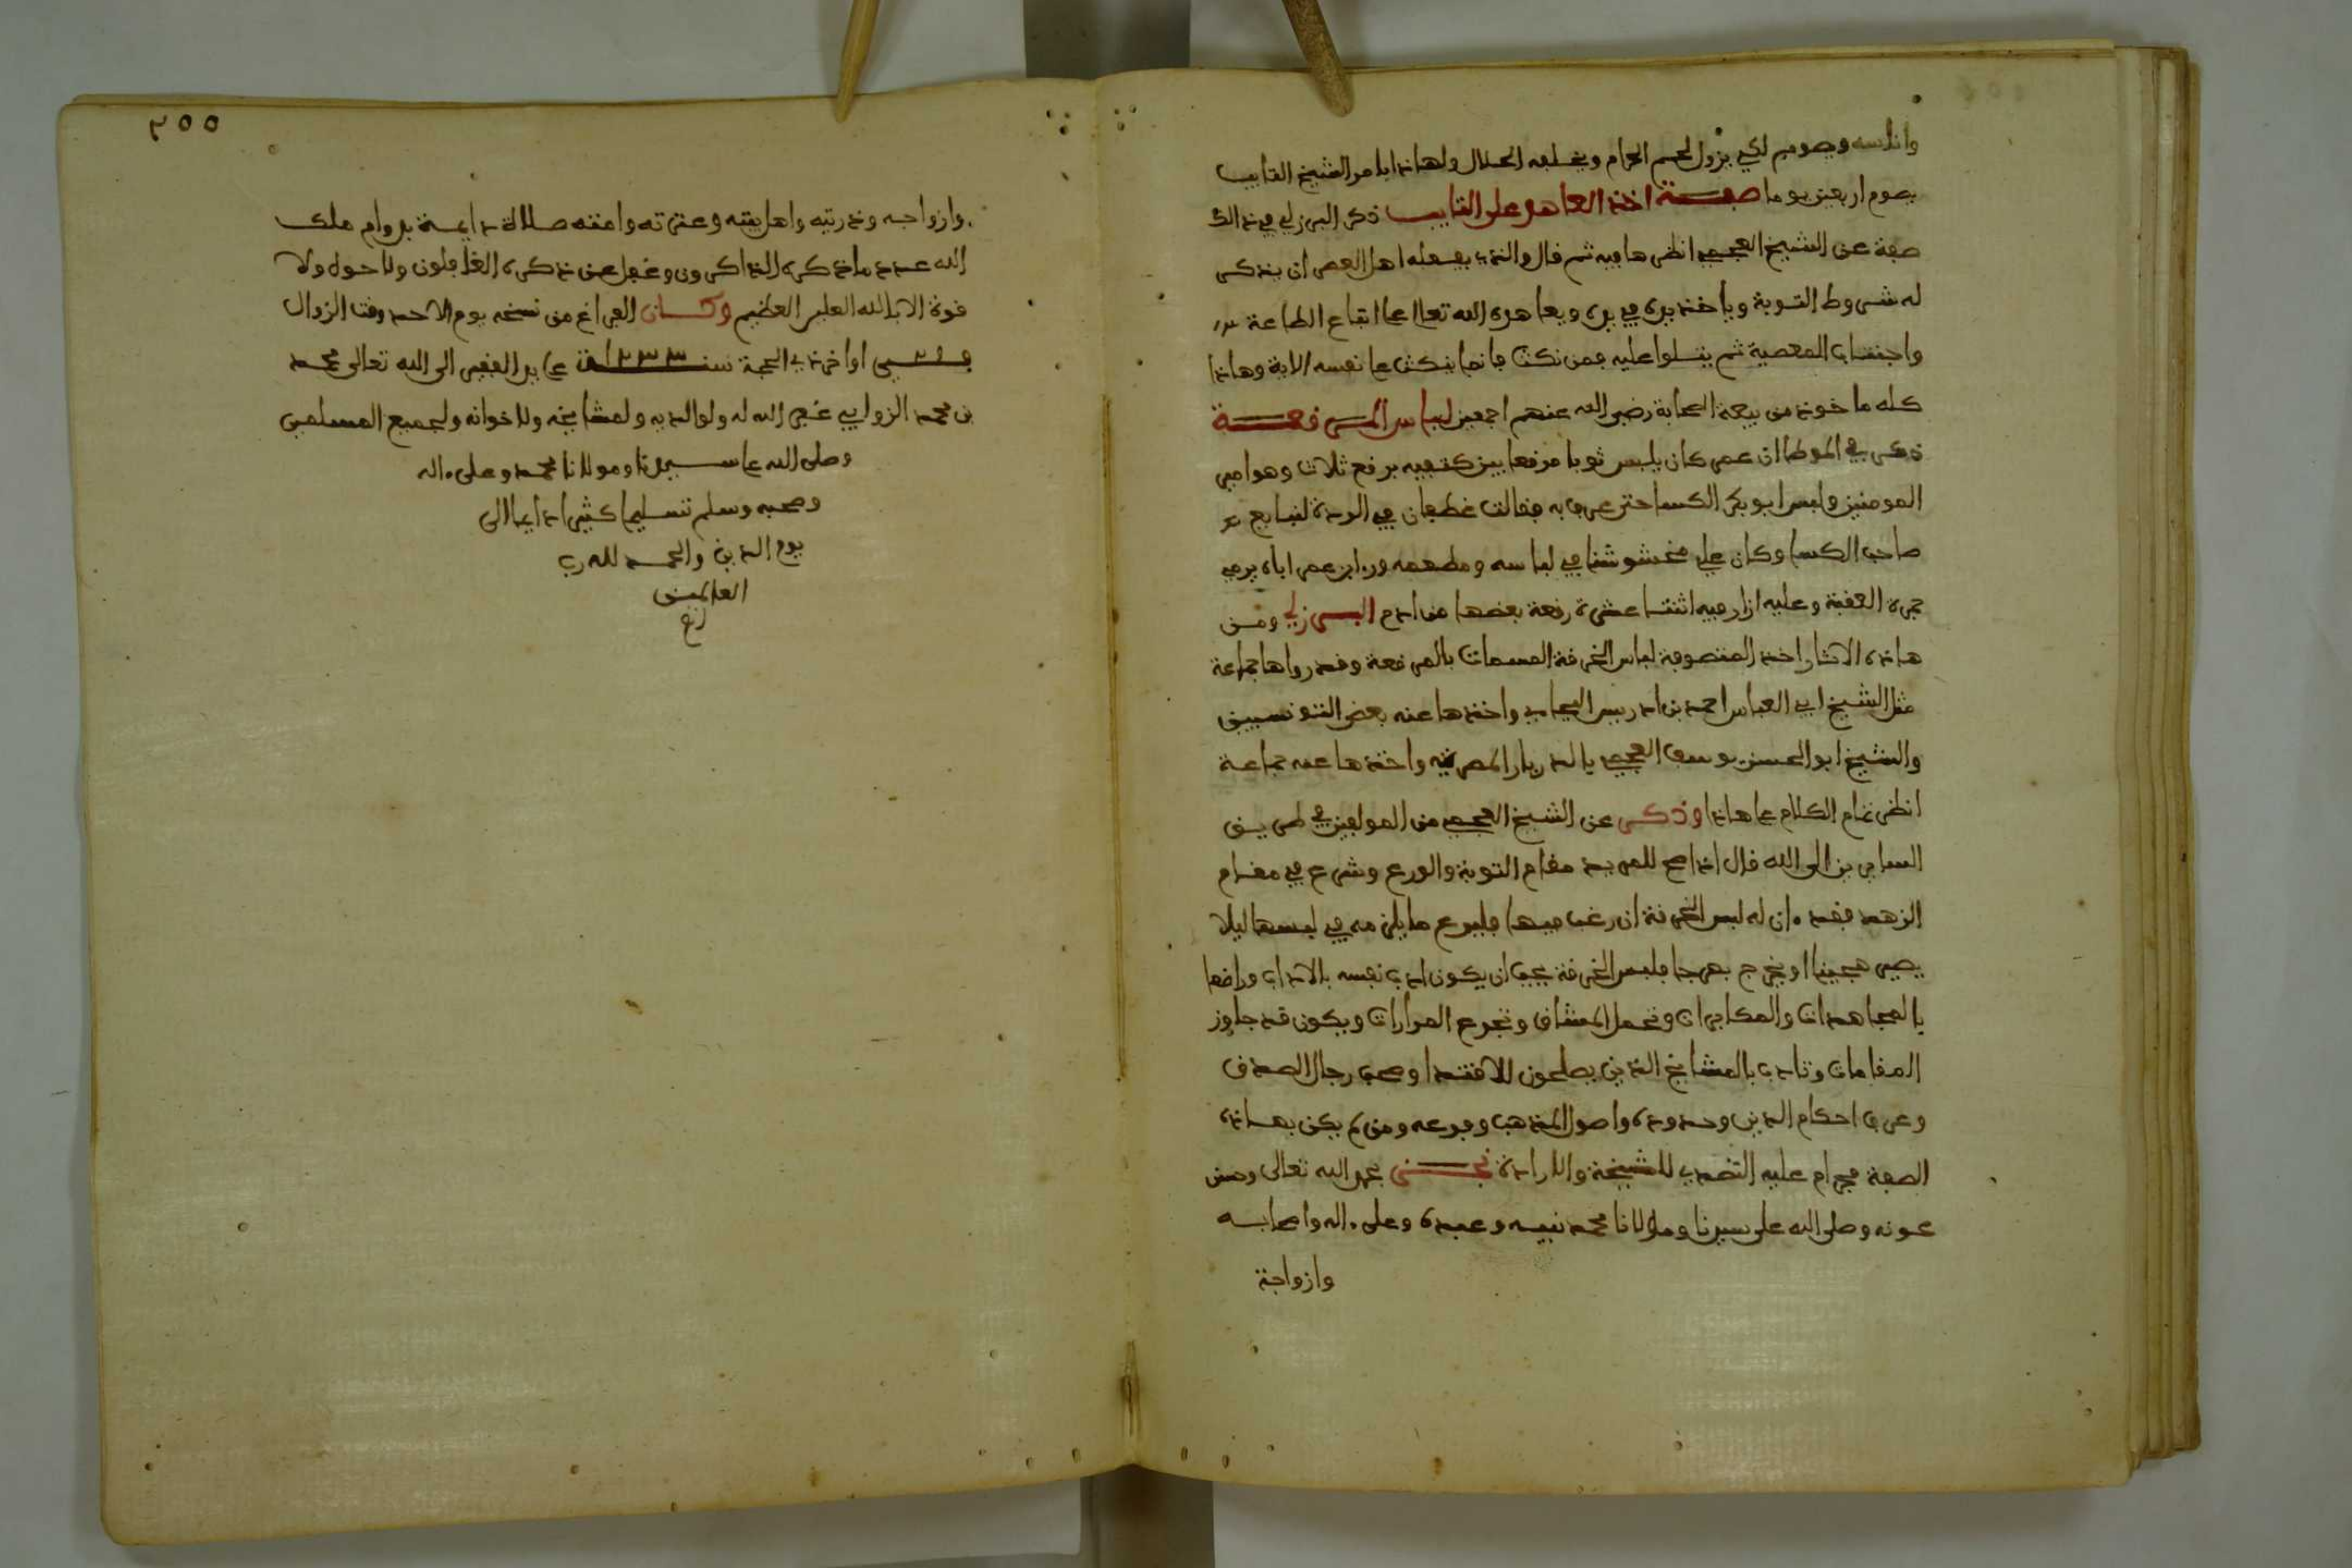 وانفسه وصومه لكي يزول لحم الحرام ويخلفه الحلال ولهاذا يامر الشيخ التايب
بصوم اربعين يوما صفة اخذ العاهد على التايب ذكر البرزلي في ذالك
صفة عن الشيخ العجمي انظرها فيه ثم قال والذي يفعله اهل العصر ان يذكر
له شروط التوبة وياخذ يده في يده ويعاهده الله تعالى على اتباع الطاعة
واجتناب المعصية ثم يتلوا عليه فمن نكث فانما ينكث على نفسه الاية وهاذا
كله ماخوذ من بيعة الصحابة رضي الله عنهم اجمعين لباس المرقعة
ذكر في الموطا ان عمر كان يلبس ثوبا مرقعا بين كتفيه برقع ثلاث وهو امير
المومنين ولبس ابو بكر الكسا حتى عرف به فقالت غطفان في الردة لنبايع
صاحب الكسا وكان علي مخشوشنا في لباسه ومطعمه ورءا ابن عمر اباه يرمي
جمرة العقبة وعليه ازار فيه اثنتا عشرة رقعة بعضها من ادم البرزلي ومن
هاذه الاثار اخذ المتصوفة لباس الخرقة المسمات بالمرقعة وقد رواها جماعة
مثل الشيخ ابي العباس احمد بن ادريس البجاءي واخذها عنه بعض التونسيين
والشيخ ابو الحسن يوسف العجمي بالديار المصرية واخذها عنه جماعة
انظر تمام الكلام على هاذا وذكر عن الشيخ العجمي من المولفين في طريق
السايرين الى الله قال اذا صح للمريد مقام التوبة والورع وشرع في مقام
الزهد فقد ءان له لبس الخرقة ان رغب فيها فليرع ما يلزمه في لبسها ليلا
يصير هجينا او يخرج بهرجا فلبس الخرقة يجب ان يكون ادب نفسه بالاداب وراضها
بالمجاهدات والمكابدات وتحمل المشاق وتجرع المرارات ويكون قد جاوز
المقامات وتادب بالمشايخ الذين يصلحون للاقتدا وصحب رجال الصدق
وعرف احكام الدين وحدوده واصول المذهب وفروعه ومن لم يكن بهاذه
الصفة فحرام عليه التصدي للمشيخة والارادة نجز بحمد الله تعالى وحسن
عونه وصلى الله على سيدنا ومولانا محمد نبيه وعبده وعلى ءاله واصحابه
وازواجة
٢٥٥
وازواجه وذريته واهل بيته وعترته وامته صلاة دايمة بدوام ملك
الله عدد ما ذكره الذاكرون وغفل عن ذكره الغافلون ولا حول ولا
قوة الا بالله العلي العظيم وكان الفراغ من نسخه يوم الاحد وقت الزوال
اواخر ذي الحجة سنة ١٢٣٣ على يد الفقير الى الله تعالى محمد
بن محمد الزوابي غفر الله له ولوالديه ولمشايخه ولاخوانه ولجميع المسلمين
وصلى الله على سيدنا ومولانا محمد وعلى ءاله
وصحبه وسلم تسليما كثيرا دايما الى
يوم الدين والحمد لله رب
العالمين